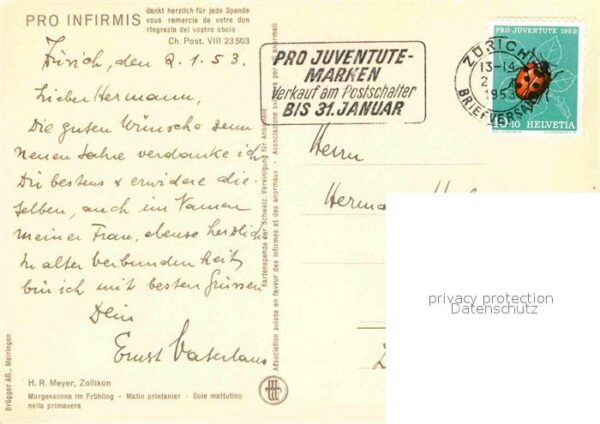 PRO INFIRMIS
dankt herzlich für jede Spende
vous remercie de votre don
ringrazia del vostro obolo
Ch. Post. VIII 23 503
Zürich, den 2.1.53.
Lieber Hermann,
Die guten Wünsche zum
neuen Jahre verdanke ich
Dir bestens & erwidere die-
selben, auch im Namen
meiner Frau, ebenso herzlich.
In alter Verbundenheit
bin ich mit besten Grüssen
Dein
Ernst
H. R. Meyer, Zollikon
Morgensonne im Frühling - Matin printanier - Sole mattutino
nella primavera
Brügger AG., Meiringen
Kartenspende der Schweiz. Vereinigung für Anormale - Associazione svizzera per gli anormali
Association suisse en faveur des infirmes et des anormaux
PRO JUVENTUTE-
MARKEN
Verkauf am Postschalter
BIS 31. JANUAR
ZÜRICH
13-14
1953
BRIEFVERSAND
PRO JUVENTUTE 1952
10+10 HELVETIA
Herrn
privacy protection
Datenschutz